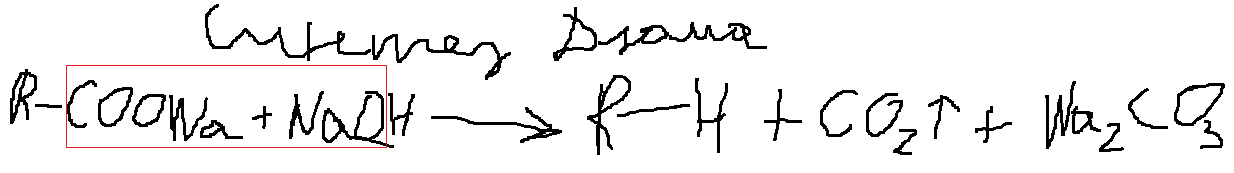 Синтез Дюма
R-COONa + NaOH → R-H + CO₂↑ + Na₂CO₃